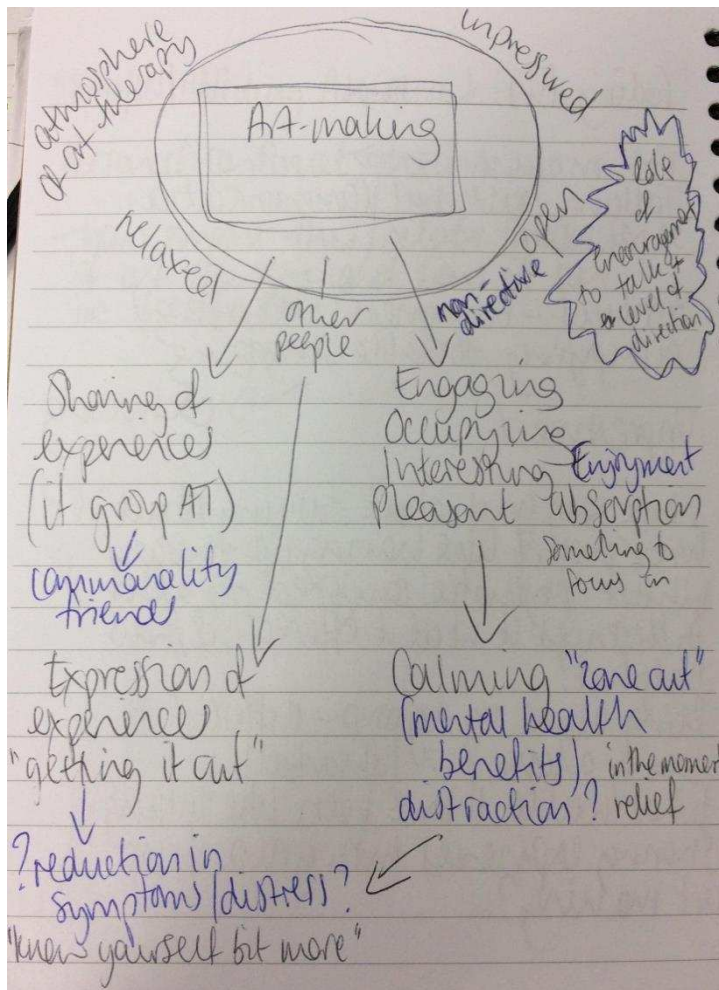 atmosphere
of art therapy
unpressured
Art-making
relaxed
other
people
non-
directive
open
Role
of
encouragement
to talk +
level of
direction
Sharing of
experiences
(if group AT)
commonality
friends
Engaging
Occupying
Interesting
Pleasant
Enjoyment
absorption
something to
focus on
Expression of
experience
"getting it out"
Calming "zone out"
(mental health
benefits)
distraction?
in the moment
relief
? reduction in
symptoms/distress?
"know yourself bit more"